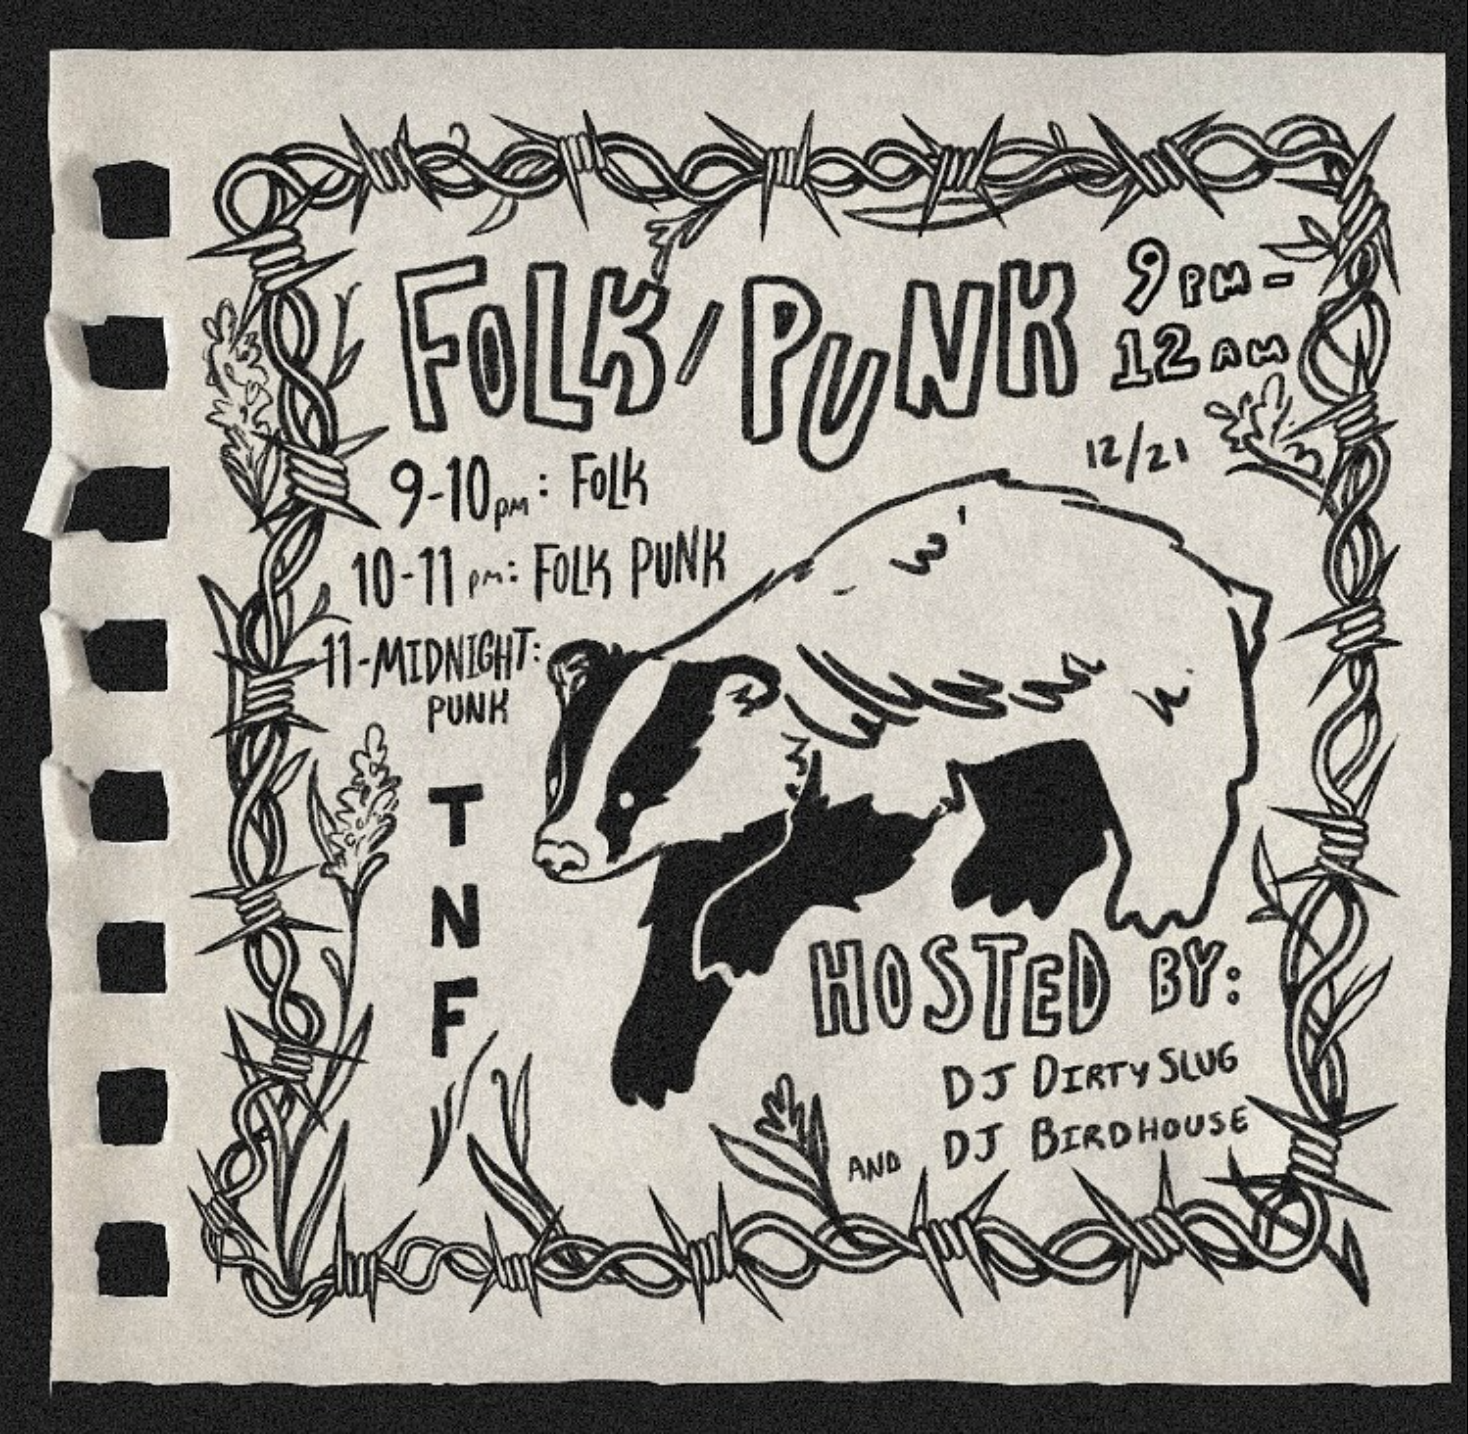 FOLK/PUNK
9PM-
12AM
12/21
9-10pm: FOLK
10-11pm: FOLK PUNK
11-MIDNIGHT:
PUNK
T
N
F
HOSTED BY:
DJ DIRTY SLUG
AND DJ BIRDHOUSE